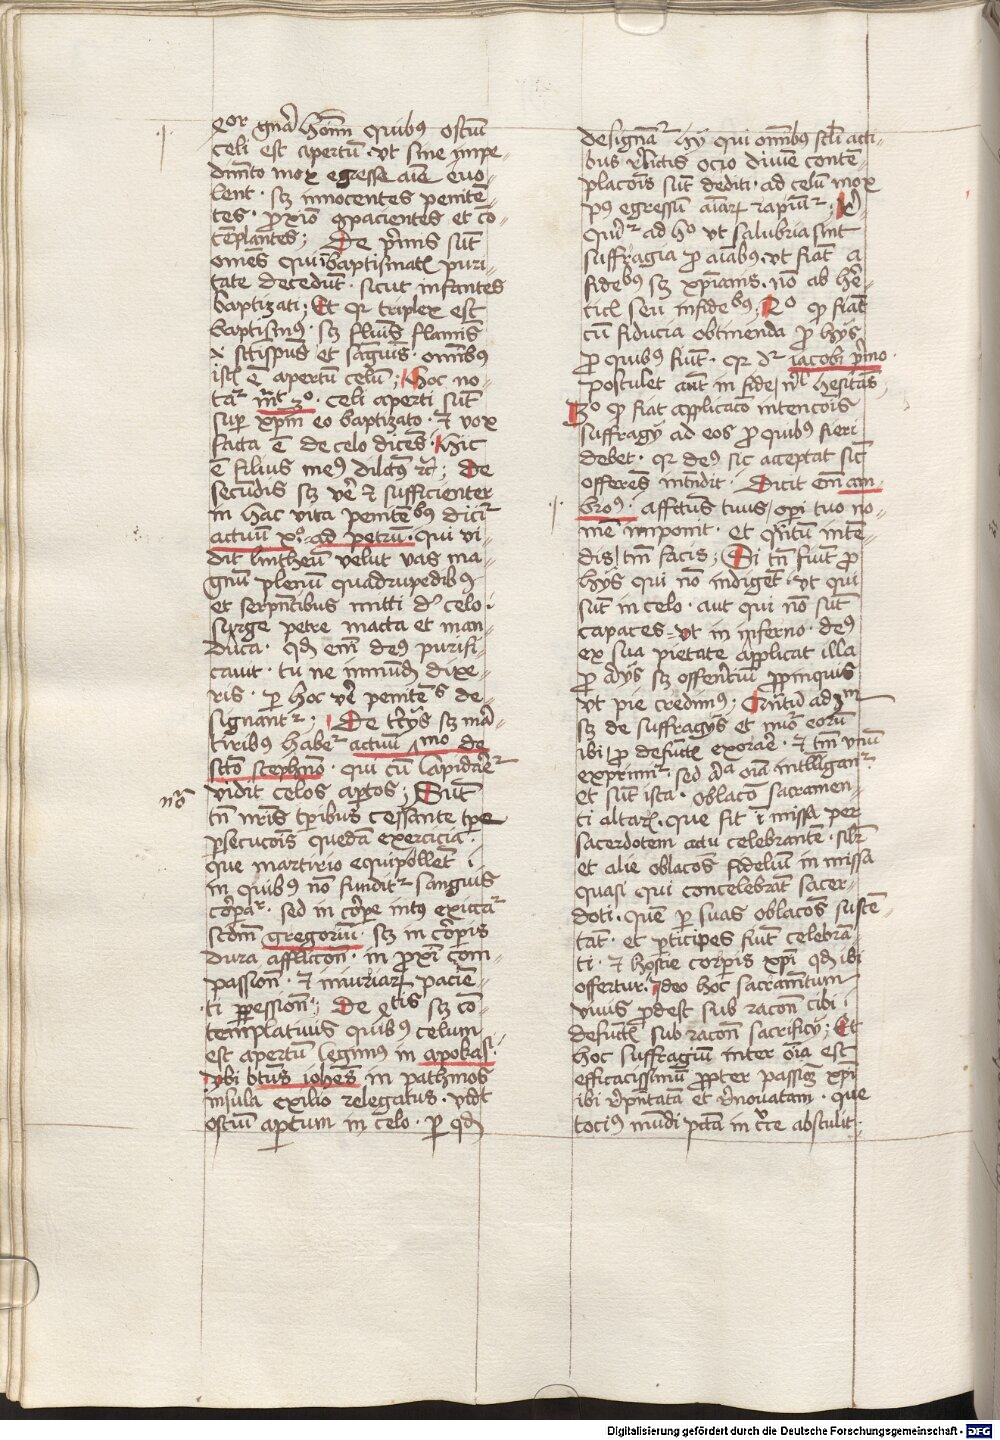 4or gn̄a hōīm quibꝰ ostiū
celi est apertū · vt sine impe-
dimēto mox egresse aīe euo-
lent · sꝫ innocentes penitē-
tes · ꝓxīo ꝯpacientes et cō-
tēplantes ; De pͥmis sūt
omēs qui ī baptismatꝭ puri-
tate decedūt · sicut infantes
baptizati ; Et qꝛ triplex est
baptismꝰ · sꝫ flūīs flamīs
et sāguīs · omībꝰ
istꝭ ē apertū celum ; Hoc no-
taͬ mͭ 3º · celi aperti sūt
super xp̄m eo baptizato · et vox
facta ē de celo dicēs · Hic
ē filius meꝰ dilcūs rc̄ ; De
secūdis sꝫ vē et sufficienter
in hac vita penitētibꝰ diciͬ
actuū xº · ad petrū · qui vi-
dit lintheū velut vas ma-
gnū plenū quadrupedibꝰ
et serpn̄tibus mitti de celo ·
surge petre macta et man-
duca · qd̄ em̄ deꝰ purifi-
cauit · tu ne inmūdū dixe-
ris · per hoc vē penitētes de-
signantͬ ; De tͨijs sꝫ mar-
tiribꝰ habeͬ actuū mo de
scto stephāo · qui cū lapidareͬ
vidit celos aptos ; Sūt
nō
tn̄ nr̄is tp̄ibus cessante tp̄e
ꝑsecucōis quedā exercicia ·
que martirio equipollēt ·
in quibꝰ nō funditͬ sanguis
corꝑaͬ · sed in corpe intꝰ excitaͬ
scdm̄ gregoriū · sꝫ in corꝑis
dura afflictōn · in ꝓxī com-
passiōn · et iniuriaꝝ paciē-
ti ꝑpessiōn ; De 4tis sꝫ cō-
templatiuis quibꝰ celum
est apertū legimꝰ in apokas ·
vbi btūs iohēs in pathmos
insula exilio relegatus · vidit
ostiū aptum in celo · ꝑ qd̄
designāͬ hij qui omībus scl̄i acti-
bus relictis ocio diuīe contē-
placōis sūt dediti · ad celū mox
pꝰ egressū aīaꝝ rapiūͬ ;
Quīͬ ad hº vt salubria sint
suffragia ꝓ aīabꝰ · vt fiāt a
fidebꝰ sꝫ xp̄ianis · nō ab he-
ticꝭ seu infidebꝰ ; 2º qꝫ fiāt
cū fiducia obtinenda ꝓ hijs
ꝓ quibus fiūt · qꝛ dͬ iacobi pͥmo ·
postulet aūt in fide / nͥl hesitās
3º qꝫ fiat applicacō intencōis
suffragij ad eos ꝓ quibus fieri
debet · qꝛ deꝰ sic acceptat sic
offerēs intēdit · Dicit em̄ am-
brosꝰ · affectus tuus / opi tuo no-
mē imponit · et qn̄tū intē-
dis / tm̄ facis ; Si tn̄ fiūt ꝓ
hijs qui nō indigēt · vt qui
sūt in celo · aut qui nō sūt
capaces · vt in inferno · deꝰ
ex sua pietate applicat illa
ꝓ alijs sꝫ offerēciū ꝓpinquis
vt pie credimꝰ ; Qn̄tū ad 3m
sꝫ de suffragijs et nūo eorū
ibi / ꝓ defūctꝭ exorare · et tm̄ vnū
exprimiͬ · sed alia oīa intelligaͬ ·
et sūt ista · oblacō sacramen-
ti altarꝭ · que fit ī missa per
sacerdotem actu celebrantē · silr̄
et alie oblacōes fidelium in missa
quasi qui concelebrāt sacer-
doti · quē ꝑ suas oblacōes sustē-
tāt · et ꝑticipes fiūt celebrā-
ti · et hostie corꝑis xp̄i qd̄ ibi
offertur · ideo hoc sacramētum
viuis ꝓdest sub racōn cibi ·
defūctꝭ sub racōn sacrificij ; Et
hoc suffragiū inter oīa est
efficacissimū ꝓpter passiōem xp̄i
ibi repn̄tatā et renouatam · que
tociꝰ mūdi pctā in cͬce abstulit ·
Digitalisierung gefördert durch die Deutsche Forschungsgemeinschaft - DFG